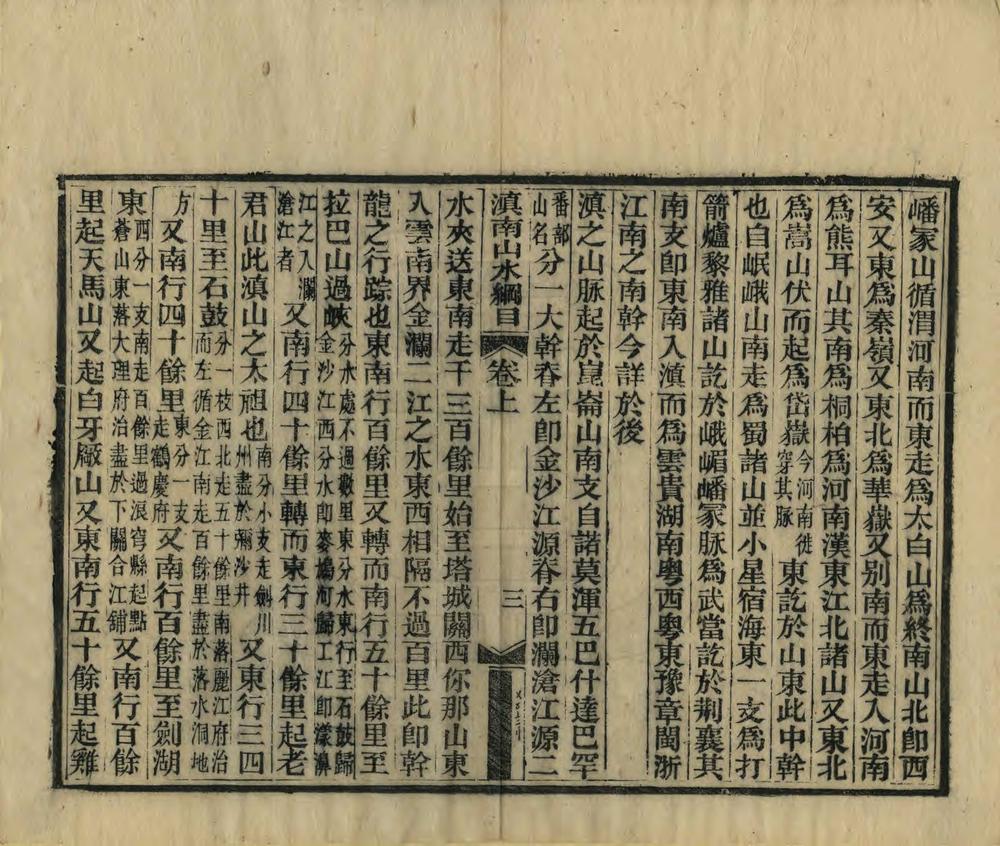 嶓冢山循渭河南而東走爲太白山爲終南山北卽西
安又東爲秦嶺又東北爲華嶽又别南而東走入河南
爲熊耳山其南爲桐柏爲河南漢東江北諸山又東北
爲嵩山伏而起爲岱嶽今河南徙穿其脉東訖於山東此中幹
也自岷峨山南走爲蜀諸山並小星宿海東一支爲打
箭爐黎雅諸山訖於峨嵋嶓冢脉爲武當訖於荆襄其
南支卽東南入滇而爲雲貴湖南粵西粵東豫章閩浙
江南之南幹今詳於後
滇之山脉起於崑崙山南支自諾莫渾五巴什達巴罕
番部山名分一大幹脊左卽金沙江源脊右卽瀾滄江源二
滇南山水綱目 卷上 三
水夾送東南走千三百餘里始至塔城關西你那山東
入雲南界金瀾二江之水東西相隔不過百里此卽幹
龍之行踪也東南行百餘里又轉而南行五十餘里至
拉巴山過峽分水處不過數里東分水東行至石鼓歸金沙江西分水卽麥塲河歸工江卽漾濞
江之入瀾滄江者又南行四十餘里轉而東行三十餘里起老
君山此滇山之太祖也南分小支走劍川州盡於彌沙井又東行三四
十里至石鼓分一枝西北走五十餘里南落麗江府治而左循金江南走百餘里盡於落水洞地
方又南行四十餘里東分一支走鶴慶府又南行百餘里至劍湖
東西分一支南走百餘里過浪穹縣起點蒼山東落大理府治盡於下關合江舖又南行百餘
里起天馬山又起白牙厰山又東南行五十餘里起雞